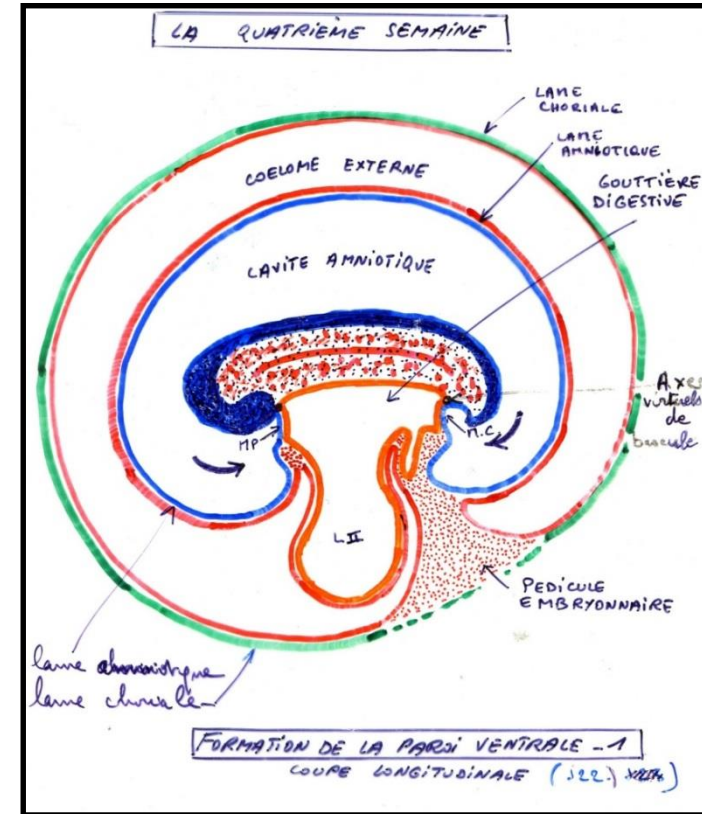 LA QUATRIEME SEMAINE
LAME
CHORIALE
LAME
AMNIOTIQUE
GOUTTIÈRE
DIGESTIVE
COELOME EXTERNE
CAVITE AMNIOTIQUE
Axes
virtuels
de
bascule
MP
M.C.
L II
PEDICULE
EMBRYONNAIRE
lame
lame choriale
FORMATION DE LA PAROI VENTRALE _ 1
COUPE LONGITUDINALE (J22.)